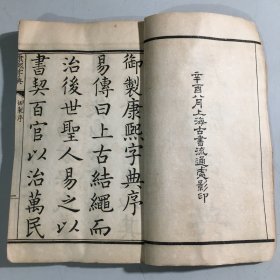 辛酉八月上海古書流通處影印
御製康熙字典序
易傳曰上古結繩而
治後世聖人易之以
書契百官以治萬民